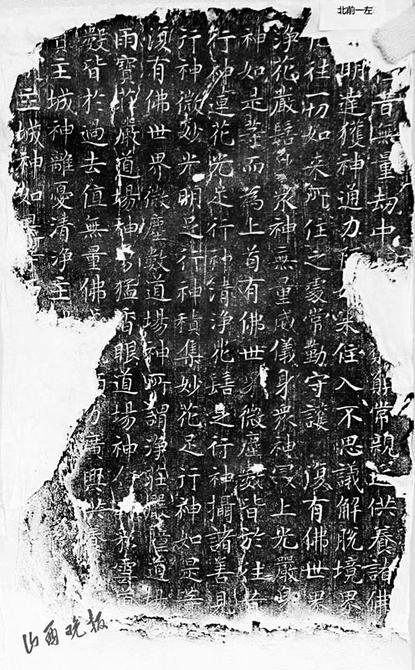 北前一左
行昔無量劫中能常親近供養諸佛
明達獲神通力来住入不思議解脫境界
往一切如来所住之處常勤守護復有佛世界
淨花嚴髻身衆神無量威儀身衆神冣上光嚴身
神如是等而為上首有佛世界微塵數皆於往昔
行神蓮花光足行神清淨花髻足行神攝諸善見
行神微妙光明足行神積集妙花足行神如是等
復有佛世界微塵數道場神所謂淨莊嚴幢道場
雨寶花嚴道場神勇猛香眼道場神彩雲道
數皆於過去值無量佛方廣興供養
主城神離憂清淨主
主城神如是
山西晚报